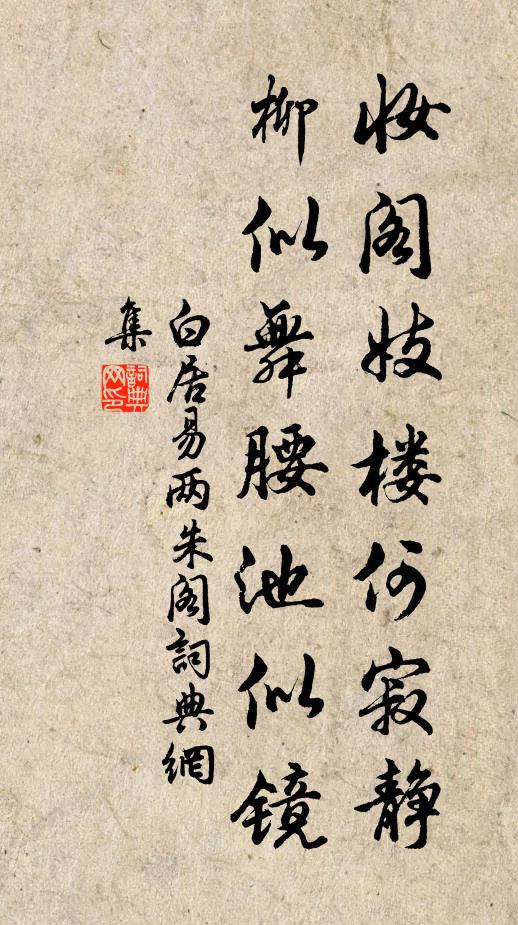 妆阁妓楼何寂静
柳似舞腰池似镜
白居易两朱阁詞典網
集
詞典
网印